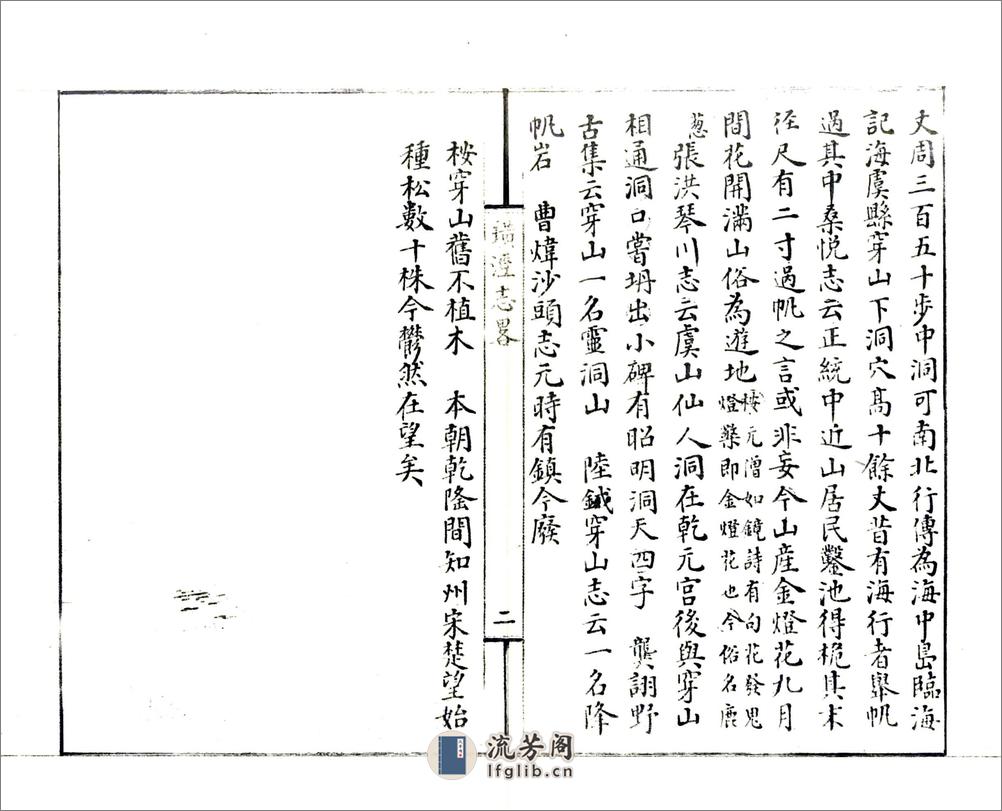 丈周三百五十步中洞可南北行傳為海中島臨海
記海虞縣穿山下洞穴髙十餘丈昔有海行者舉帆
過其中桑悦志云正統中近山居民鑿池得桅其末
徑尺有二寸過帆之言或非妄今山産金燈花九月
間花開滿山俗為遊地按元僧如鏡詩有句花發鬼
燈藥即金燈花也今俗名鹿
葱張洪琴川志云虞山仙人洞在乾元宫後與穿山
相通洞口嘗坍出小碑有昭明洞天四字 龔詡野
古集云穿山一名靈洞山 陸鉞穿山志云一名降
帆岩 曹煒沙頭志元時有鎮今廢
璜涇志畧
二
桉穿山舊不植木 本朝乾隆間知州宋楚望始
種松數十株今鬱然在望矣
流芳阁
lfglib.cn